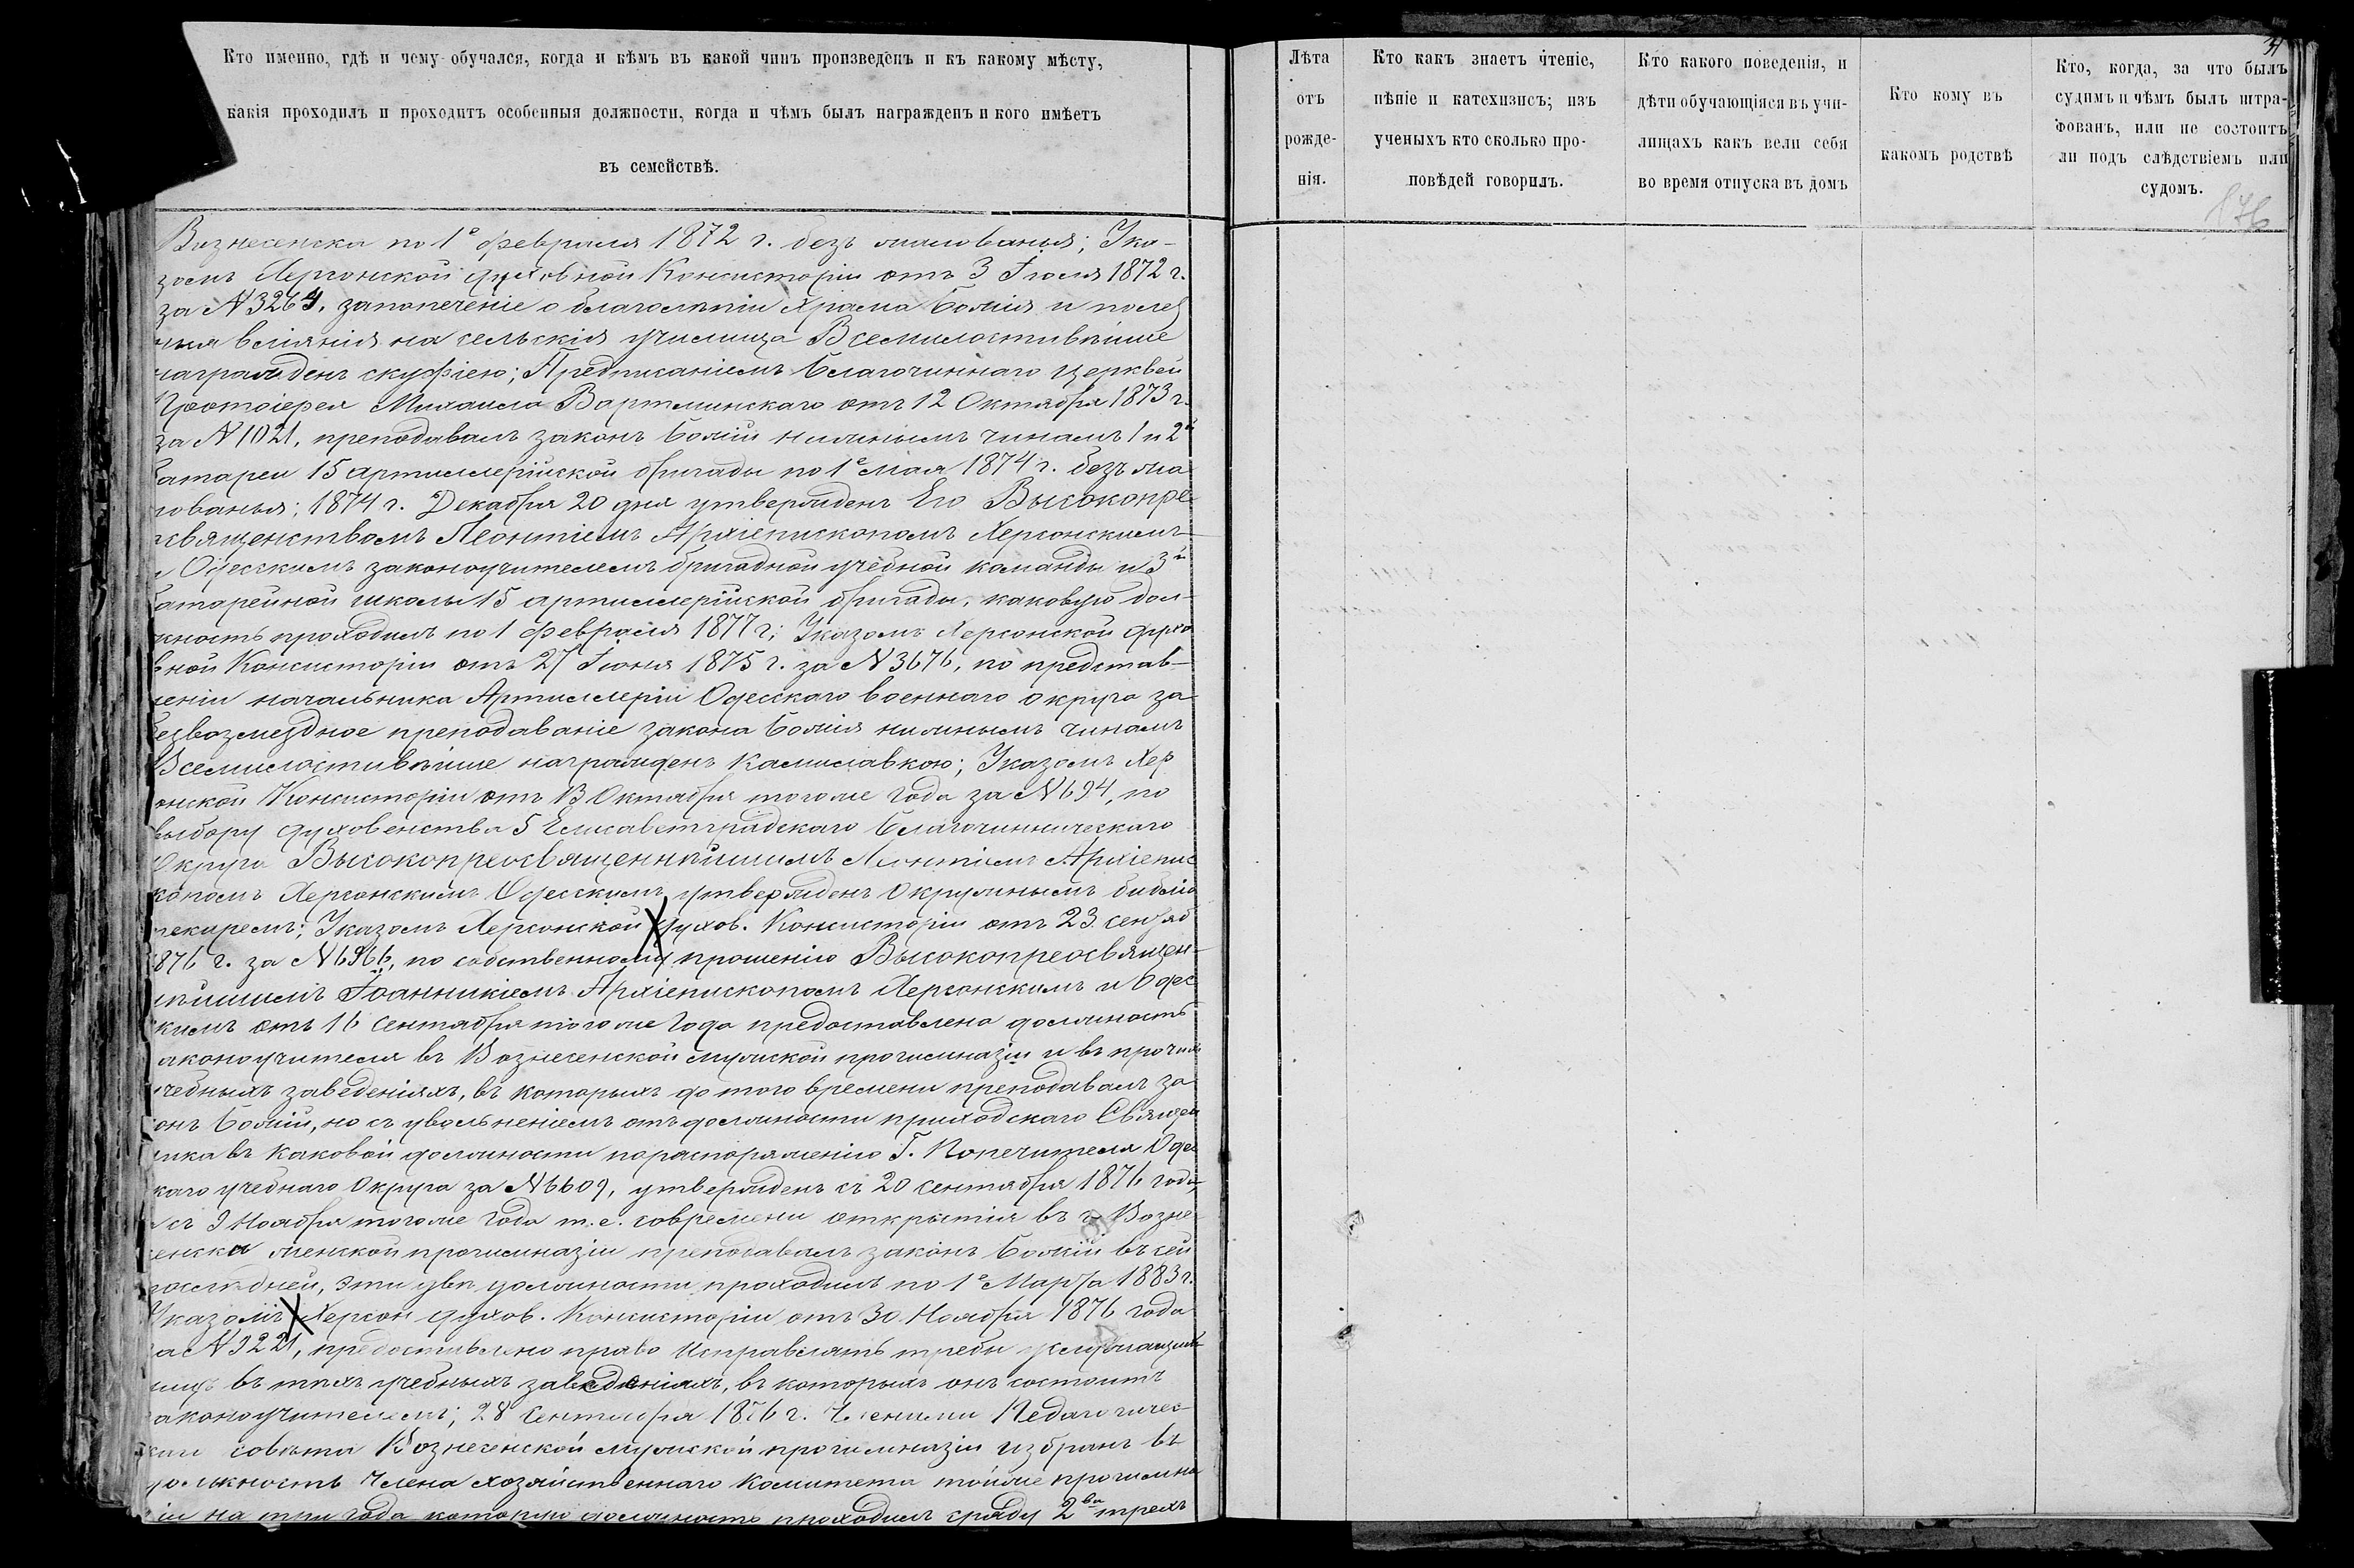 Кто именно, гдѣ и чему обучался, когда и кѣмъ въ какой чинъ произведенъ и къ какому мѣсту,
какія проходилъ и проходитъ особенныя должности, когда и чѣмъ былъ награжденъ и кого имѣетъ
въ семействѣ.
Вознесенска по 1е февраля 1872 г. безъ жалованья; Ука-
зомъ Херсонской духовной Консисторіи отъ 3 Іюля 1872 г.
за N 3264, за попеченіе о благолѣпіи Храма Божія и полез
ныя вліянія на сельскія училища Всемилостивѣйше
награжденъ скуфіею; Предписаніемъ Благочиннаго церквей
Протоіерея Михаила Вартминскаго отъ 12 Октября 1873 г.
за N 1021, преподавалъ законъ Божій нижнымъ чинамъ 1 и 2й
батареи 15 артиллерійской бригады по 1е мая 1874 г. безъ жа
лованья; 1874 г. Декабря 20 дня утвержденъ Его Высокопре-
освященствомъ Леонтіемъ Архіепископомъ Херсонскимъ
и Одесскимъ законоучителемъ бригадной учебной команды и 3й
батарейной школы 15 артиллерійской бригады, каковую дол-
жность проходилъ по 1 февраля 1877 г; Указомъ Херсонской духо
вной Консисторіи отъ 27 Іюня 1875 г. за N 3676, по представ-
леніи начальника Артиллеріи Одесскаго военнаго округа за
безвозмездное преподаваніе закона Божія нижнымъ чинамъ
Всемилостивѣйше награжденъ Камилавкою; Указомъ Хер
сонской Консисторіи отъ 13 Октября тогоже года за N 694, по
выбору духовенства 5 Елисаветградскаго Благочинническаго
Округа Высокопреосвященнѣйшимъ Леонтіемъ Архіепис
копомъ Херсонскимъ Одесскимъ утвержденъ Окружнымъ библіо
текаремъ; Указомъ Херсонской Духов. Консисторіи отъ 23 сентяб
1876 г. за N 6966, по собственному прошенію Высокопреосвящен-
нѣйшимъ Іоанникіемъ Архіепископомъ Херсонскимъ и Одес
скимъ отъ 16 Сентября тогоже года предоставлена должность
законоучителя въ Вознесенской мужской прогимназіи и въ прочихъ
учебныхъ заведеніяхъ, въ которыхъ до того времени преподавалъ за
конъ Божій, но съ увольненіемъ отъ должности приходскаго Священ
ника въ каковой должности по распоряженію Г. Попечителя Одес
скаго учебнаго Округа за N 6609, утвержденъ съ 20 сентября 1876 года,
а съ 9 Ноября тогоже года т.е. со времени открытія въ г. Возне-
сенска женской прогимназіи преподавалъ законъ Божій въ сей
послѣдней, эти двѣ должности проходилъ по 1е Марта 1883 г.
Указомъ Херсон духов. Консисторіи отъ 30 Ноября 1876 года
за N 9221, предоставлено право исправлять требы
въ тѣхъ учебныхъ заведеніяхъ, въ которыхъ онъ состоитъ
законоучителемъ; 28 Сентября 1876 г. Членами Педагогичес-
каго совѣта Вознесенской мужской прогимназіи избранъ въ
должность Члена хозяйственнаго Комитета тойже прогимна
зіи на три года которую должность проходилъ сряду 2ва трехъ
Лѣта
отъ
рожде-
нія.
Кто какъ знаетъ чтеніе,
пѣніе и катехизисъ; изъ
ученыхъ кто сколько про-
повѣдей говорилъ.
Кто какого поведенія, и
дѣти обучающіяся въ учи-
лищахъ какъ вели себя
во время отпуска въ домъ
Кто кому въ
какомъ родствѣ
Кто, когда, за что былъ
судимъ и чѣмъ былъ штра-
фованъ, или не состоитъ
ли подъ слѣдствіемъ или
судомъ.
876